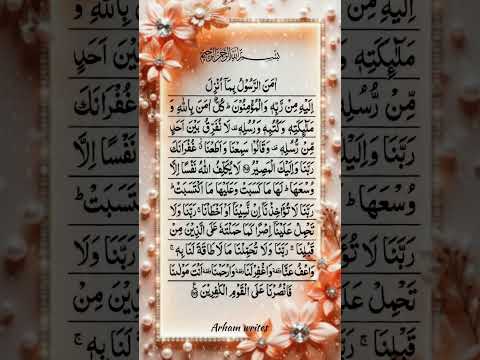 بِسْمِ اللهِ الرَّحْمٰنِ الرَّحِيْمِ
اٰمَنَ الرَّسُوْلُ بِمَاۤ اُنْزِلَ
اِلَيْهِ مِنْ رَّبِّهٖ وَالْمُؤْمِنُوْنَ ؕ كُلٌّ اٰمَنَ بِاللهِ وَ
مَلٰٓئِكَتِهٖ وَكُتُبِهٖ وَرُسُلِهٖ ۟ لَا نُفَرِّقُ بَيْنَ اَحَدٍ
مِّنْ رُّسُلِهٖ ۟ وَقَالُوْا سَمِعْنَا وَاَطَعْنَا ۫ غُفْرَانَكَ
رَبَّنَا وَاِلَيْكَ الْمَصِيْرُ ۝ لَا يُكَلِّفُ اللهُ نَفْسًا اِلَّا
وُسْعَهَا ؕ لَهَا مَا كَسَبَتْ وَعَلَيْهَا مَا اكْتَسَبَتْ ؕ
رَبَّنَا لَا تُؤَاخِذْنَاۤ اِنْ نَّسِيْنَاۤ اَوْ اَخْطَاْنَا ۚ رَبَّنَا وَلَا
تَحْمِلْ عَلَيْنَاۤ اِصْرًا كَمَا حَمَلْتَهٗ عَلَى الَّذِيْنَ مِنْ
قَبْلِنَا ۚ رَبَّنَا وَلَا تُحَمِّلْنَا مَا لَا طَاقَةَ لَنَا بِهٖ ۚ
وَاعْفُ عَنَّا ۥ وَاغْفِرْ لَنَا ۥ وَارْحَمْنَا ۥ اَنْتَ مَوْلٰىنَا
فَانْصُرْنَا عَلَى الْقَوْمِ الْكٰفِرِيْنَ ۝
Arham writes